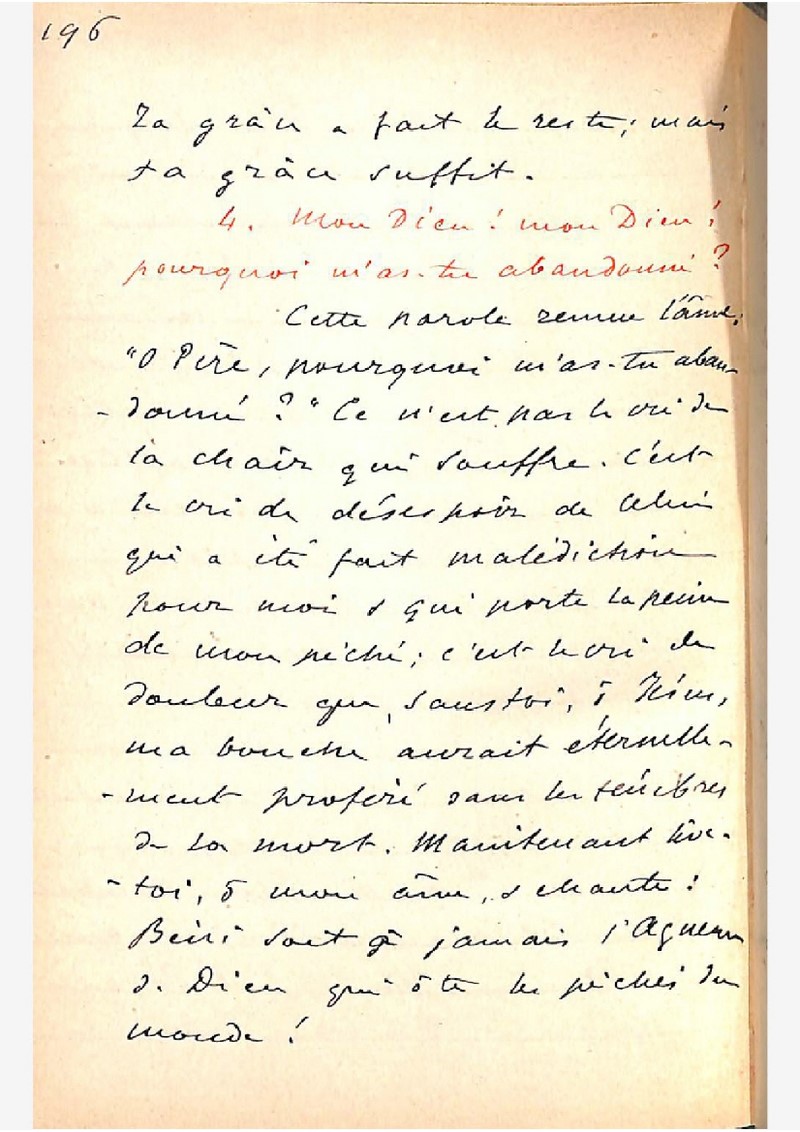 196
Ta grâce a fait le reste; mais
ta grâce suffit.
4. Mon Dieu! mon Dieu!
pourquoi m'as-tu abandonné?
Cette parole remue l'âme:
"O Père, pourquoi m'as-tu aban-
-donné?" Ce n'est pas le cri de
la chair qui souffre. C'est
le cri de désespoir de Celui
qui a été fait malédiction
pour moi & qui porte la peine
de mon péché; c'est le cri de
douleur que, sans toi, ô Jésus,
ma bouche aurait éternelle-
-ment proféré dans les ténèbres
de la mort. Maintenant lève-
-toi, ô mon âme, & chante:
Béni soit à jamais l'Agneau
de Dieu qui ôte les péchés du
monde!